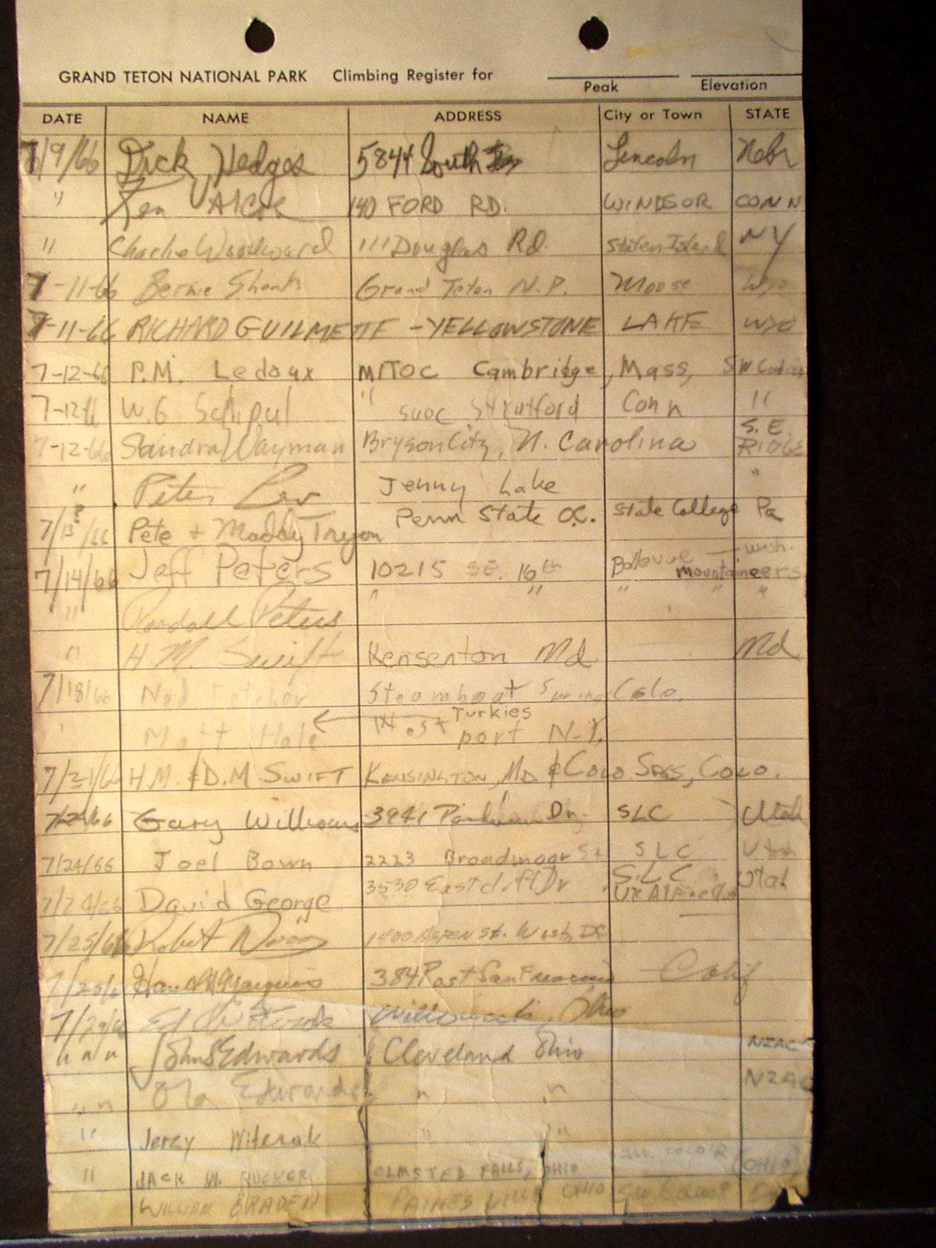 GRAND TETON NATIONAL PARK Climbing Register for
Peak Elevation
DATE NAME ADDRESS City or Town STATE
7/9/66 Dick Hedges 5844 South Lincoln Nebr
" Ken Alcox 140 FORD RD. WINDSOR CONN
" Charlie Woodward 111 Douglas Rd. Staten Island NY
7-11-66 Bernie Shanks Grand Teton N.P. Moose Wyo
7-11-66 RICHARD GUILMETTE - YELLOWSTONE LAKE WYO
7-12-66 P.M. Ledoux MITOC Cambridge, Mass, SW
7-12-66 W.G Schipul " SUOC Stratford Conn "
7-12-66 Sandra Wayman Bryson City, N. Carolina S.E. RIDGE
" Peter Lev Jenny Lake "
7/13?/66 Pete + Maddy Tryon Penn State O.C. State College Pa
7/14/66 Jeff Peters 10215 SE. 16th Bellevue - Wash. Mountaineers
" Randall Peters " " " " "
" H M Swift Kensenton Md. Md
7/18/66 Steamboat Springs Colo.
" Matt Hale ← West port N.Y. Turkies
7/21/66 H.M. & D.M. SWIFT KENSINGTON, MD. & COLO SPGS, COLO.
7/24/66 Gary Williams 3941 Dr. SLC Utah
7/24/66 Joel Bown 2223 Broadmoor St SLC Utah
7/24/66 David George 3530 Eastcliff Dr S.L.C Utah
7/25/66 Robert 1400 ASPEN St. Wash DC
384 Post San Francisco Calif
7/29/6 Ed Ohio
" " " John S Edwards Cleveland Ohio NZAC
" " Ola Edwards " " NZAC
" Jerzy Witerak " "
" JACK W. RUCKER OLMSTED FALLS, OHIO (OHIO)
WILLIAM BRADEN PAINESVILLE OHIO